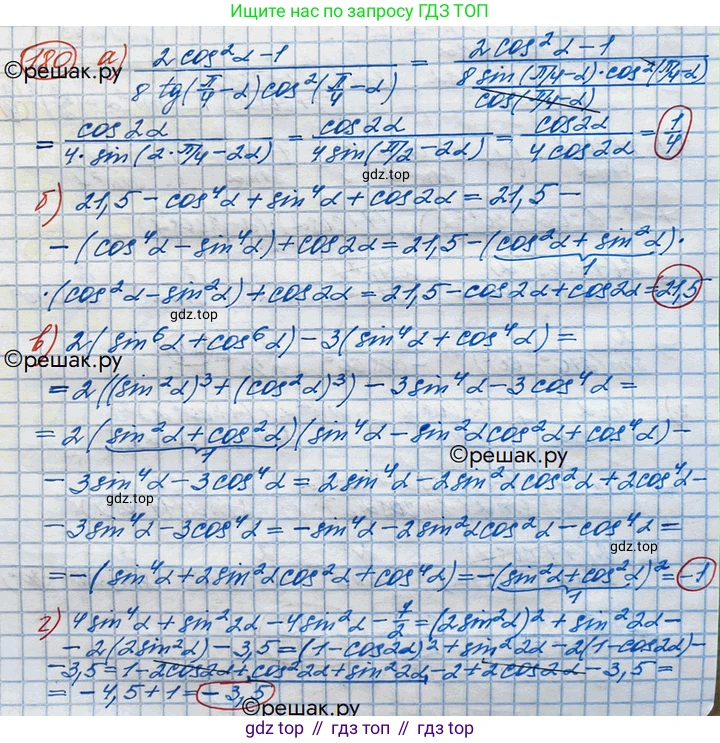 Больше решений по запросу ГДЗ ТОП
180 а) (2cos²α-1)/(8tg(π/4-α)cos²(π/4-α)) = (2cos²α-1)/((8sin(π/4-α)·cos²(π/4-α))/(cos(π/4-α)))
©решак.ру
= (cos2α)/(4·sin(2·π/4-2α)) = (cos2α)/(4sin(π/2-2α)) = (cos2α)/(4cos2α) = 1/4
gdz.top
б) 21,5-cos⁴α+sin⁴α+cos2α=21,5-
-(cos⁴α-sin⁴α)+cos2α=21,5-(cos²α+sin²α)·
1
·(cos²α-sin²α)+cos2α=21,5-cos2α+cos2α=21,5
gdz.top
в) 2(sin⁶α+cos⁶α)-3(sin⁴α+cos⁴α)=
©решак.ру
=2((sin²α)³+(cos²α)³)-3sin⁴α-3cos⁴α=
=2(sin²α+cos²α)(sin⁴α-sin²αcos²α+cos⁴α)-
1
©решак.ру
-3sin⁴α-3cos⁴α=2sin⁴α-2sin²αcos²α+2cos⁴α-
gdz.top
-3sin⁴α-3cos⁴α=-sin⁴α-2sin²αcos²α-cos⁴α=
gdz.top
=-(sin⁴α+2sin²αcos²α+cos⁴α)=-(sin²α+cos²α)²=-1
1
г) 4sin⁴α+sin²2α-4sin²α-7/2=(2sin²α)²+sin²2α-
-2(2sin²α)-3,5=(1-cos2α)²+sin²2α-2(1-cos2α)-
-3,5=1-2cos2α+cos²2α+sin²2α-2+2cos2α-3,5=
=-4,5+1=-3,5
©решак.ру
gdz.top // гдз топ // gdz.top